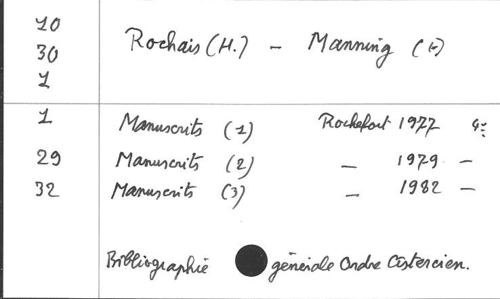 10
30
1
Rochais (H.) - Manning (E)
1 Manuscrits (1) Rochefort 1977 4°
29 Manuscrits (2) — 1979 —
32 Manuscrits (3) — 1982 —
Bibliographie générale Ordre Cistercien.